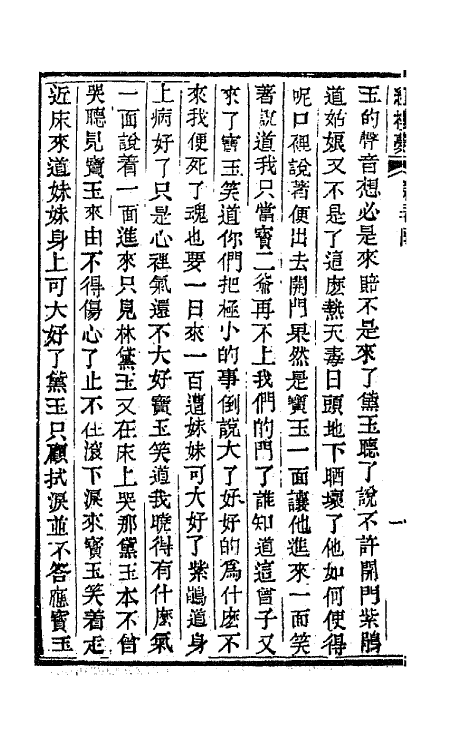 玉的聲音想必是來賠不是來了黛玉聽了說不許開門紫鵑
道姑娘又不是了這麽熱天毒日頭地下晒壞了他如何使得
呢口裡說著便出去開門果然是寳玉一面讓他進來一面笑
著說道我只當寳二爺再不上我們的門了誰知道這會子又
來了寳玉笑道你們把極小的事倒說大了好好的爲什麽不
來我便死了魂也要一日來一百遭妹妹可大好了紫鵑道身
上病好了只是心裡氣還不大好寳玉笑道我曉得有什麽氣
一面說着一面進來只見林黛玉又在床上哭那黛玉本不曾
哭聽見寳玉來由不得傷心了止不住滾下淚來寳玉笑着走
近床來道妹妹身上可大好了黛玉只顧拭淚並不答應寳玉